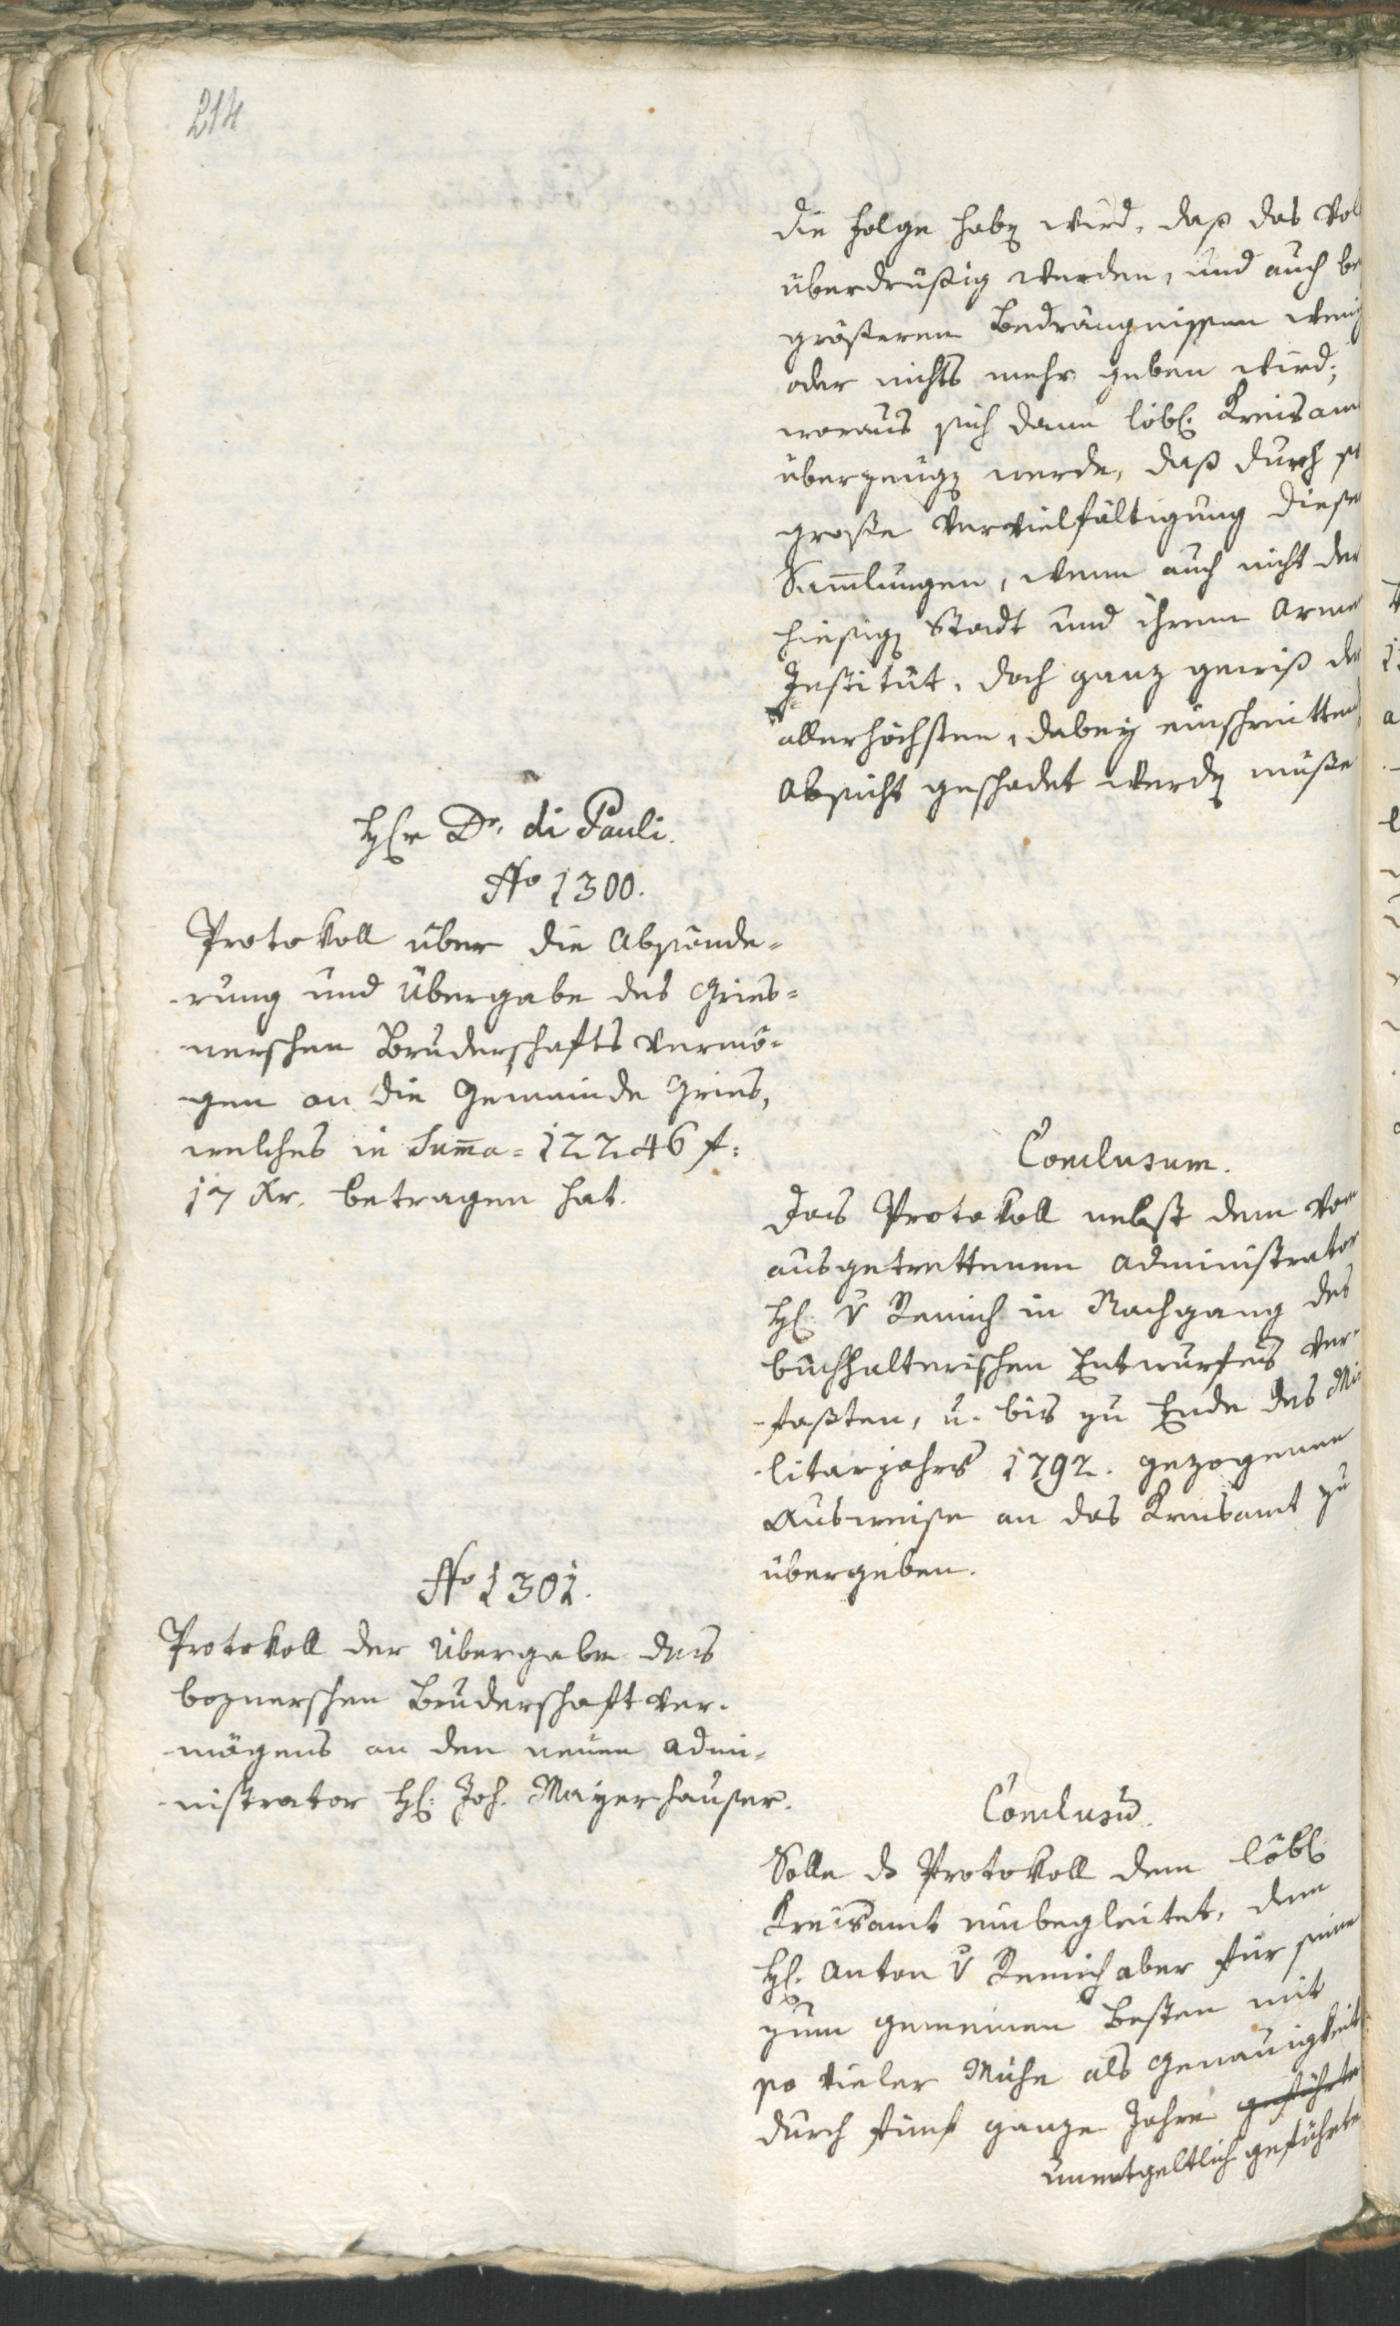 214
die Folge haben wird, daß das Vol
überdrüßig werden, und auch be
größeren Bedrängnissen wenig
oder nichts mehr geben wird;
woraus sich dann löbl. Kreisam
überzeugen werde, daß durch so
große Vervielfältigung dieser
Sam̄lungen, wenn auch nicht der
hiesigen Stadt und ihrem Armen
Institut, doch ganz gewiß der
allerhöchsten, dabey einschreitten
Absicht geschadet werden müße
Hr Dr. di Pauli.
No 1300.
Protokoll über die Absönde-
-rung und Übergabe des Gries-
nerschen Bruderschafts Vermö-
gen an die Gemeinde Gries,
welches in Sum̄a = 12246 f:
17 Kr. betragen hat.
Conclusum.
Das Protokoll nebst dem vom
ausgetrettenen Administrator
H: v Remich in Nachgang des
buchhalterischen Entwurfes ver-
-faßten, u. bis zu Ende des Mi
-litarjahrs 1792. gezogenen
Ausweise an das Kreisamt zu
übergeben.
No 1301.
Protokoll der Übergabe des
boznerschen Bruderschaft Ver-
-mögens an den neuen Admi-
-nistrator H: Joh. Mayerhauser.
Conclusū.
Solle ds Protokoll dem löbl
Kreisamt einbegleitet, dem
H: Anton v Remich aber für seine
zum gemeinen Besten mit
so vieler Mühe als Genauigkeit
durch fünf ganze Jahre geführte
unentgeltlich geführte